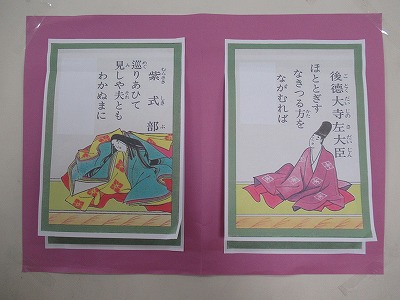 後徳大寺左大臣
ほととぎす
なきつる方を
ながむれば
紫式部
巡りあひて
見しや夫とも
わかぬまに